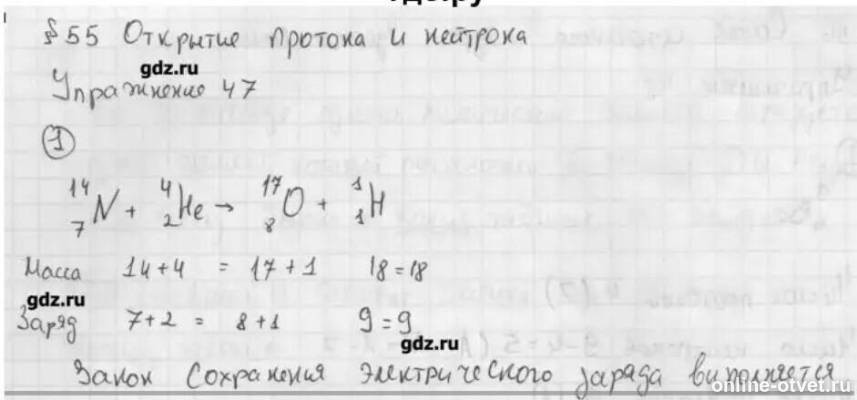 гдз.ру
§ 55 Открытие протона и нейтрона
gdz.ru
Упражнение 47
1
¹⁴₇N + ⁴₂He → ¹⁷₈O + ¹₁H
Масса 14+4 = 17+1 18=18
gdz.ru
Заряд 7+2 = 8+1 9=9
gdz.ru
Закон Сохранения Электрического заряда выполняется
online-otvet.ru